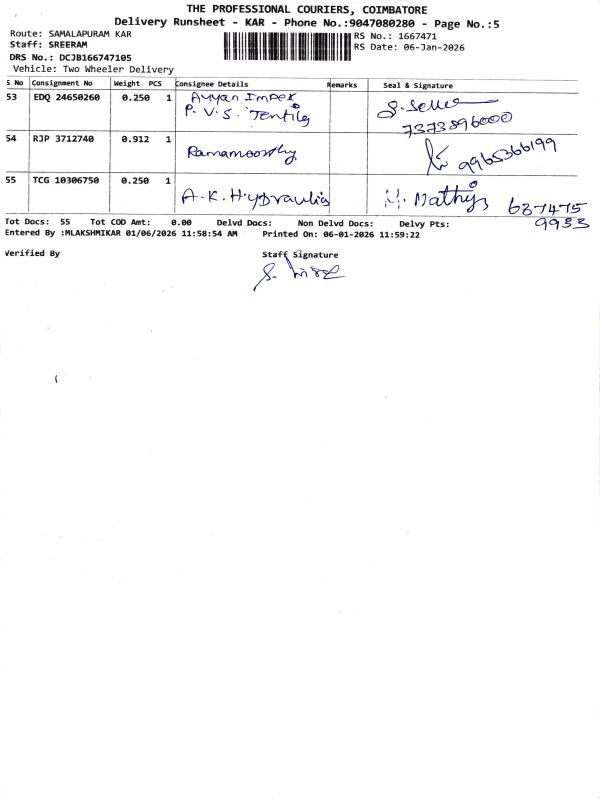 THE PROFESSIONAL COURIERS, COIMBATORE
Delivery Runsheet - KAR - Phone No.:9047080280 - Page No.:5
Route: SAMALAPURAM KAR
RS No.: 1667471
Staff: SREERAM
RS Date: 06-Jan-2026
DRS No.: DCJB166747105
Vehicle: Two Wheeler Delivery
S No Consignment No Weight PCS Consignee Details Remarks Seal & Signature
53 EDQ 24650260 0.250 1 Ayyan Impex
P.V.S. Textiles
7373896000
54 RJP 3712740 0.912 1 Ramamoorthy 9965366199
55 TCG 10306750 0.250 1 A.K.Hydraulics 637475
9933
Tot Docs: 55 Tot COD Amt: 0.00 Delvd Docs: Non Delvd Docs: Delvy Pts:
Entered By :MLAKSHMIKAR 01/06/2026 11:58:54 AM Printed On: 06-01-2026 11:59:22
Verified By Staff Signature